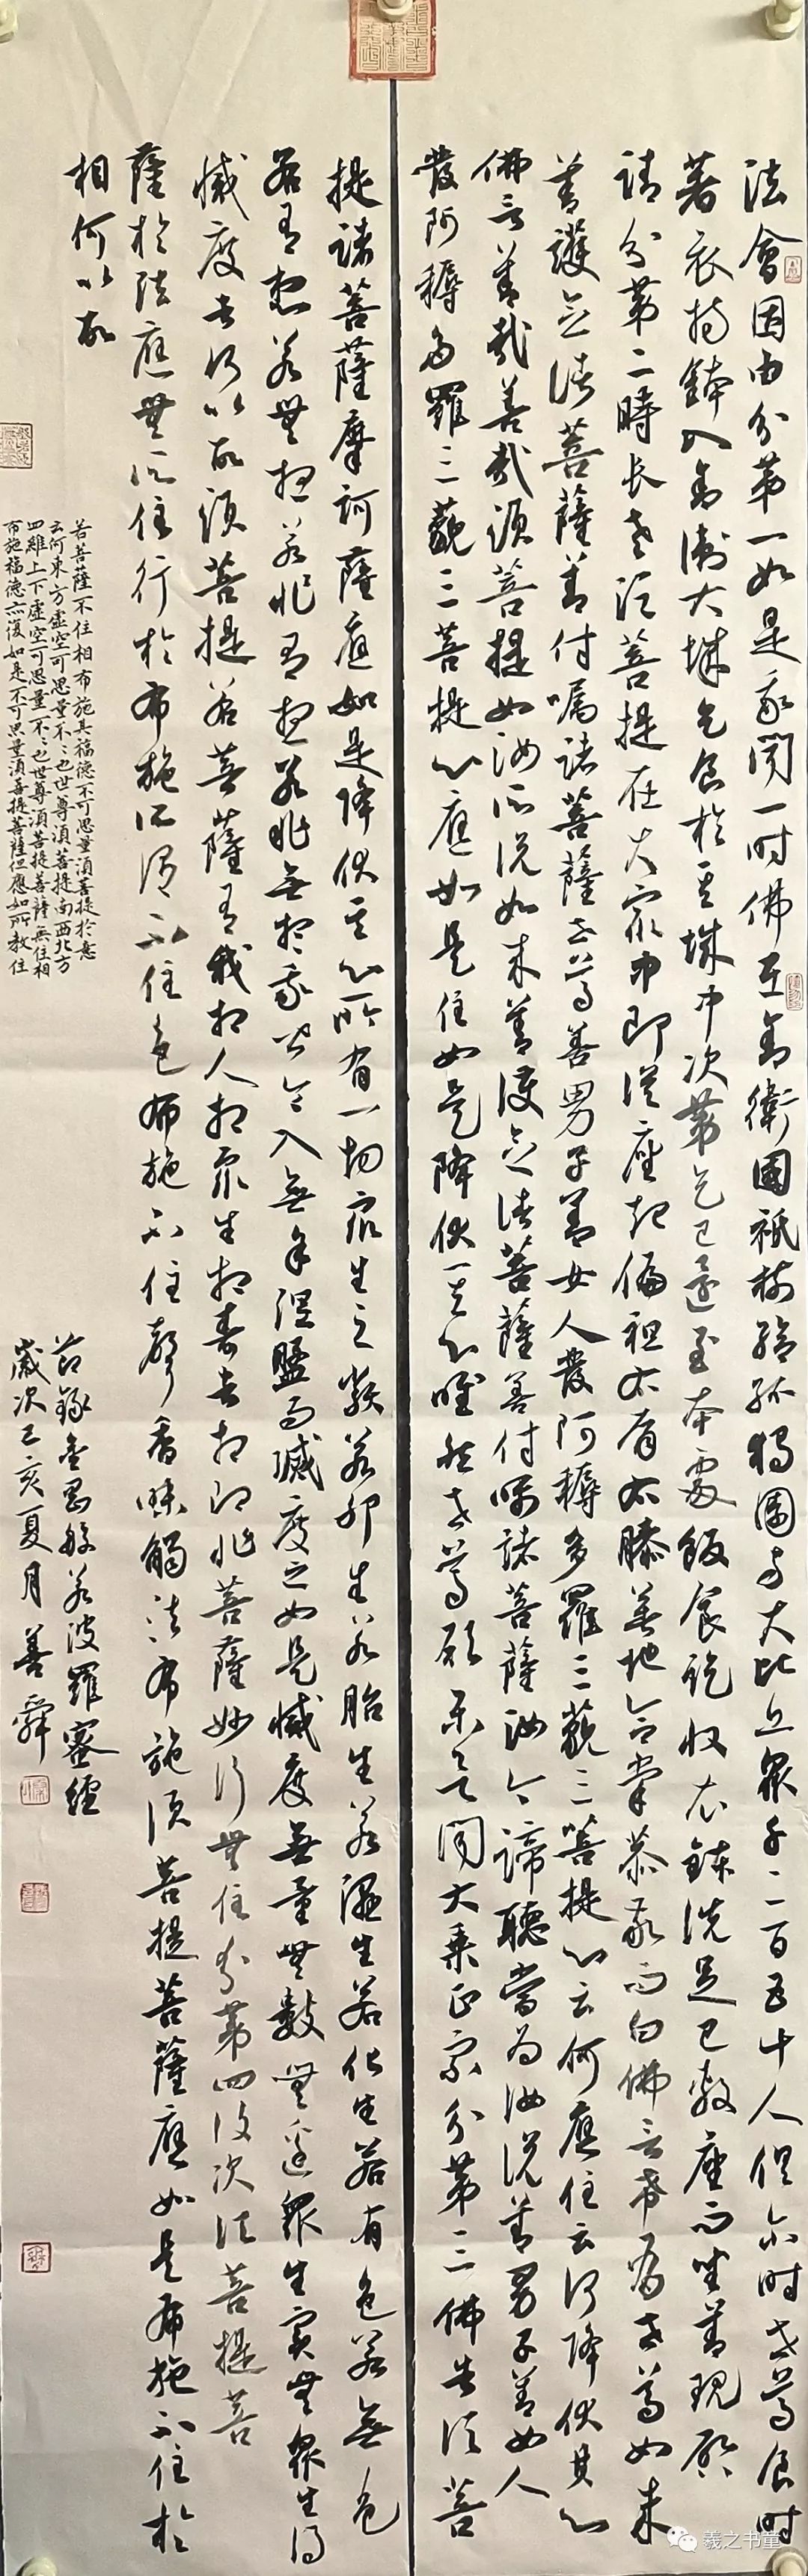 法會因由分第一如是我聞一時佛在舍衛國祇樹給孤獨園與大比丘眾千二百五十人俱爾時世尊食時
著衣持鉢入舍衛大城乞食於其城中次第乞已還至本處飯食訖收衣鉢洗足已敷座而坐善現啟
請分第二時長老須菩提在大眾中即從座起偏袒右肩右膝著地合掌恭敬而白佛言希有世尊如來
善護念諸菩薩善付囑諸菩薩世尊善男子善女人發阿耨多羅三藐三菩提心云何應住云何降伏其心
佛言善哉善哉須菩提如汝所說如來善護念諸菩薩善付囑諸菩薩汝今諦聽當為汝說善男子善女人
發阿耨多羅三藐三菩提心應如是住如是降伏其心唯然世尊願樂欲聞大乘正宗分第三佛告須菩
提諸菩薩摩訶薩應如是降伏其心所有一切眾生之類若卵生若胎生若濕生若化生若有色若無色
若有想若無想若非有想若非無想我皆令入無餘涅槃而滅度之如是滅度無量無數無邊眾生實無眾生得
滅度者何以故須菩提若菩薩有我相人相眾生相壽者相即非菩薩妙行無住分第四復次須菩提菩
薩於法應無所住行於布施所謂不住色布施不住聲香味觸法布施須菩提菩薩應如是布施不住於
相何以故
若菩薩不住相布施其福德不可思量須菩提於意
云何東方虛空可思量不〻也世尊須菩提南西北方
四維上下虛空可思量不〻也世尊須菩提菩薩無住相
布施福德亦復如是不可思量須菩提菩薩但應如所教住
節錄金剛般若波羅蜜經
歲次己亥夏月善舜
羲之书童